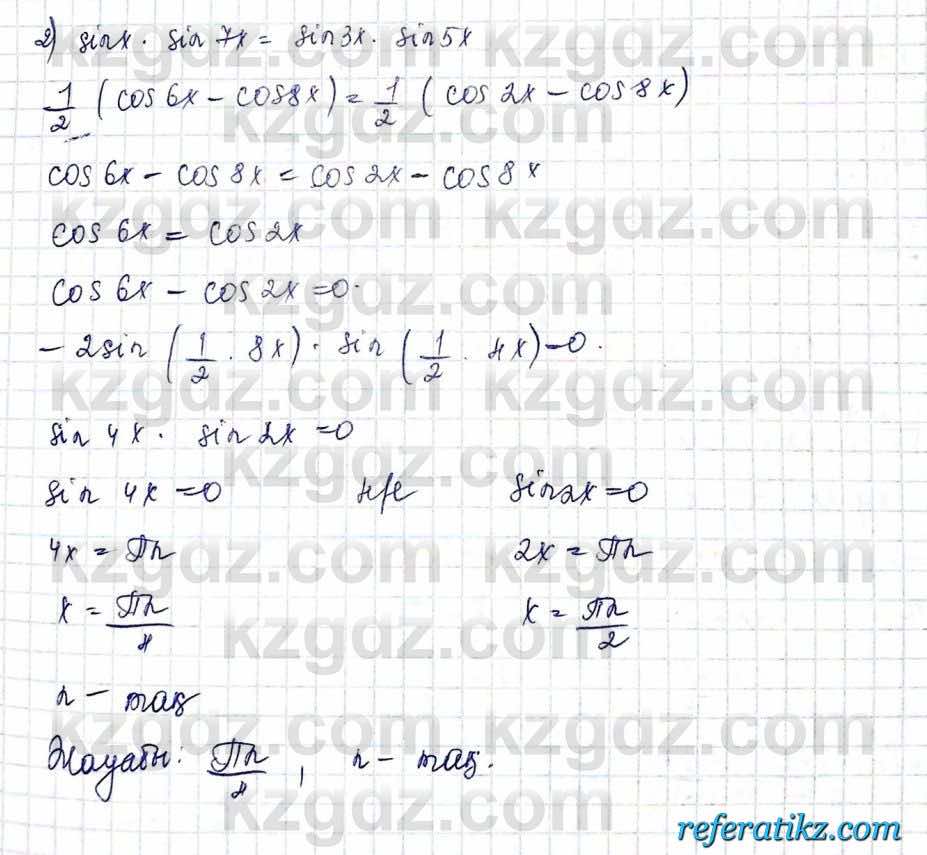 2) sinx · sin 7x = sin3x · sin5x
1/2 (cos 6x – cos8x) = 1/2 (cos 2x – cos 8x)
cos 6x – cos 8x = cos2x – cos8x
cos 6x = cos 2x
cos 6x – cos 2x = 0.
– 2sin (1/2 · 8x) · sin (1/2 · 4x) = 0.
sin 4x · sin 2x = 0
sin 4x = 0 н/е sin2x = 0
4x = Пn 2x = Пn
x = Пn/4 x = Пn/2
n – тақ
Жауабы: Пn/4, n – тақ.
kzgdz.com
referatikz.com